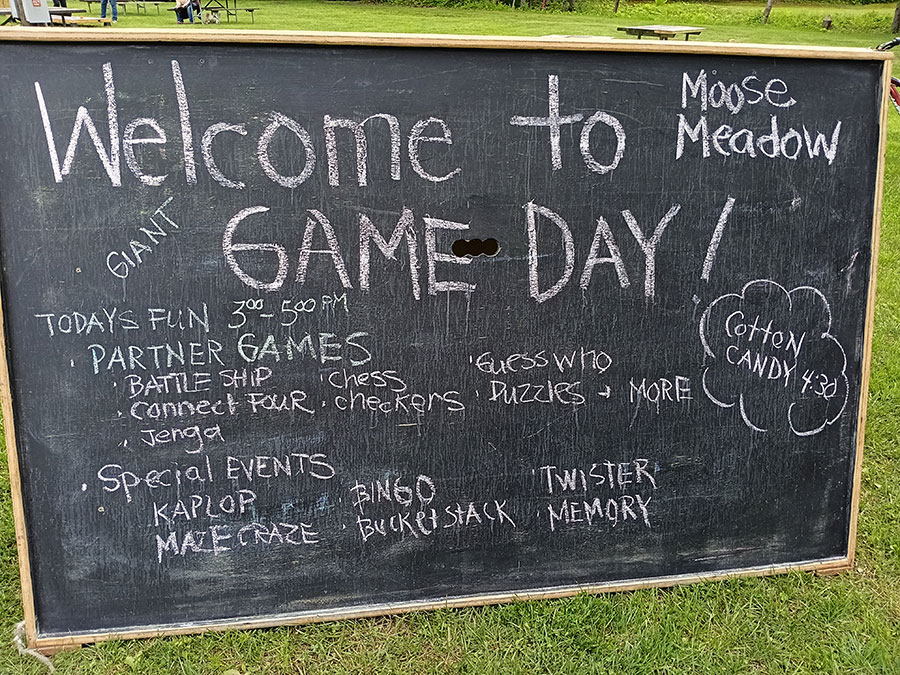 Welcome to
Moose
Meadow
GIANT
GAME DAY!
TODAYS FUN 3:00-5:00 PM
· PARTNER GAMES
· BATTLE SHIP · Chess · Guess who
· Connect Four · checkers · Puzzles + MORE
· Jenga
Cotton
CANDY 4:30
· Special EVENTS
KAPLOP · BINGO · TWISTER
MAZE CRAZE · Bucket STACK · MEMORY